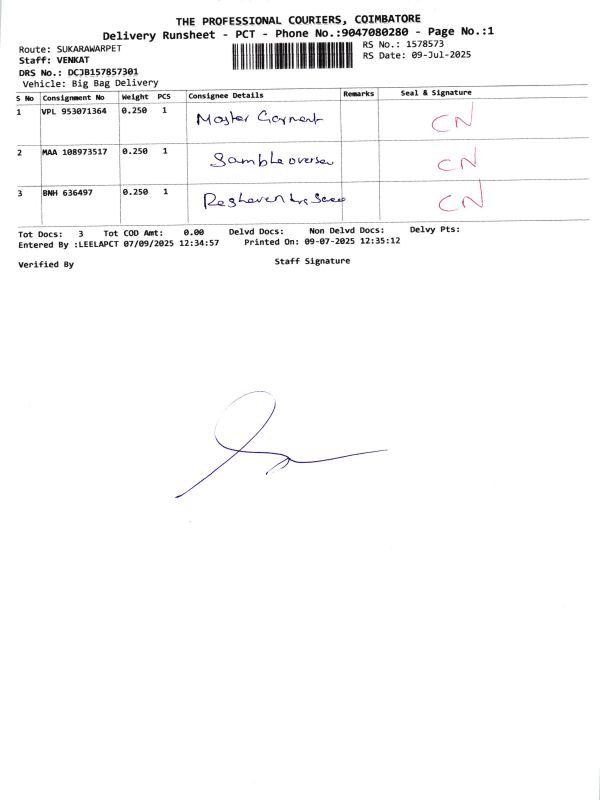 THE PROFESSIONAL COURIERS, COIMBATORE
Delivery Runsheet - PCT - Phone No.:9047080280 - Page No.:1
Route: SUKARAWARPET RS No.: 1578573
Staff: VENKAT RS Date: 09-Jul-2025
DRS No.: DCJB157857301
Vehicle: Big Bag Delivery
S No Consignment No Weight PCS Consignee Details Remarks Seal & Signature
1 VPL 953071364 0.250 1 Master Garment CN
2 MAA 108973517 0.250 1 CN
3 BNH 636497 0.250 1 CN
Tot Docs: 3 Tot COD Amt: 0.00 Delvd Docs: Non Delvd Docs: Delvy Pts:
Entered By :LEELAPCT 07/09/2025 12:34:57 Printed On: 09-07-2025 12:35:12
Verified By Staff Signature